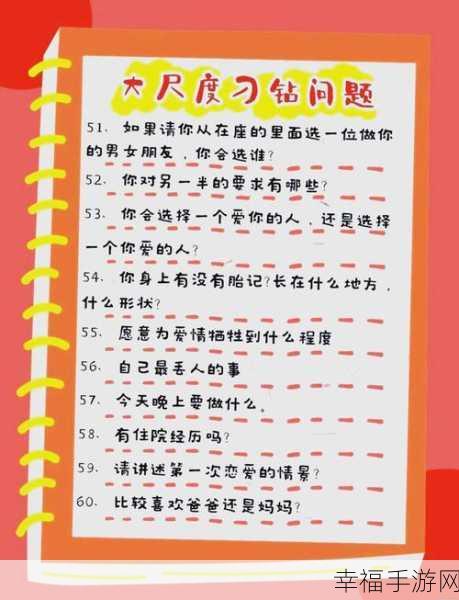 大尺度刁钻问题
51. 如果请你从在座的里面选一位做你
的男女朋友，你会选谁?
52. 你对另一半的要求有哪些?
53. 你会选择一个爱你的人，还是选择
一个你爱的人?
54. 你身上有没有胎记?长在什么地方，
什么形状?
55. 愿意为爱情牺牲到什么程度
56. 自己最丢人的事
57. 今天晚上要做什么。
58. 有住院经历吗?
59. 请讲述第一次恋爱的情景?
60. 比较喜欢爸爸还是妈妈?
幸福手游网